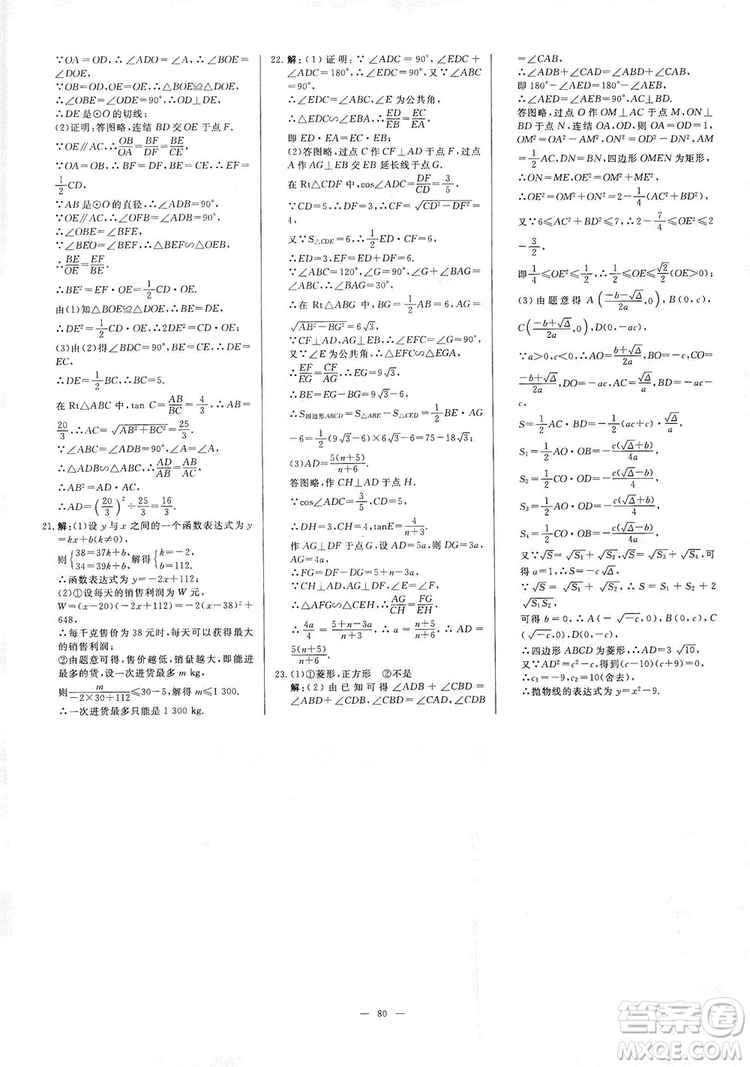 ∵OA=OD,∴∠ADO=∠A,∴∠BOE=
∠DOE.
∵OE=OE,∴△BOE≌△DOE,
∴∠OBE=∠ODE=90°,∴OD⊥DE,
∴DE是⊙O的切线;
(2)证明:答图略,连结BD交OE于点F.
∵OE∥AC,∴OB/OA=BF/DF=BE/CE.
∵OA=OB,∴BF=DF,BE=CE,∴EF=
1/2CD.
∵AB是⊙O的直径,∴∠ADB=90°,
∵OE∥AD,∴∠OFB=90°,
∴∠OBE=∠BFE,
∵∠BEO=∠BEF,∴△BEF∽△OEB,
∴BE/OE=EF/BE,
∴BE²=EF·OE=1/2CD·OE,
由(1)知△BOE≌△DOE,∴BE=DE,
∴DE²=1/2CD·OE,∴2DE²=CD·OE;
(3)由(2)得∠BDC=90°,BE=CE,∴DE=
EC,
∴DE=1/2BC,∴BC=5.
在Rt△ABC中,tan C=AB/BC=4/3,∴AB=
20/3,∴AC=√(AB²+BC²)=25/3.
∵∠ADB=∠ABC=90°,∠A=∠A,
∴△ABD∽△ACB,∴AD/AB=AB/AC,
∴AB²=AD·AC,
∴AD=(20/3)²÷25/3=16/3.
21. 解:(1)设y与x之间的一个函数表达式为y
=kx+b(k≠0),
则{38=37k+b, 34=39k+b, 解得{k=-2, b=112,
∴函数表达式为y=-2x+112;
(2)①设每天的销售利润为W元,
W=(x-20)(-2x+112)=-2(x-38)²+
648,
∴每千克售价为38元时,每天可以获得最大
的销售利润;
②由题意可得,售价越低,销量越大,即能进
最多的货,设一次进货最多m kg,
则m/(-2×30+112)≤30-5,解得m≤1 300,
∴一次进货最多只能是1 300 kg.
22. 解:(1)证明:∵∠ADC=90°,∠EDC+
∠ADC=180°,∴∠EDC=90°,又∵∠ABC=90°,
∴∠EDC=∠ABC,∠E为公共角,
∴△EDC∽△EBA,∴ED/EB=EC/EA,
即ED·EA=EC·EB;
(2)答图略,过点C作CF⊥AD于点F,过点
A作AG⊥EB交EB延长线于点G.
在Rt△CDF中,cos∠ADC=DF/CD=3/5,
∵CD=5,∴DF=3,∴CF=√(CD²-DF²)=
4,
又∵S△CDE=6,∴1/2ED·CF=6,
∴ED=3,EF=ED+DF=6.
∵∠ABC=120°,∠G=90°,
∴∠BAG=30°,
∴在Rt△ABG中,BG=1/2AB=6,AG=
√(AB²-BG²)=6√3,
∵CF⊥AD,AG⊥EB,∴∠EFC=∠G=90°,
又∵∠E为公共角,∴△EFC∽△EGA,
∴EF/EG=CF/AG,∴EG=9√3,
∴BE=EG-BG=9√3-6,
∴S四边形ABCD=S△ABE-S△CED=1/2BE·AG
-6=1/2(9√3-6)×6√3-6=75-18√3;
(3)AD=5(n+5)/(n+6).
答图略,作CH⊥AD于点H.
∵cos∠ADC=3/5,CD=5,
∴DH=3,CH=4,∴tanE=4/(n+3),
作AG⊥DF于点G,设AD=5a,则DG=3a,
AG=4a,
∴FG=DF-DG=5+n-3a,
∵CH⊥AD,AG⊥DF,∠E=∠F,
∴△AFG∽△CEH,∴AG/CH=FG/EH,
∴4a/4=(5+n-3a)/(n+3),∴a=(n+5)/(n+6),∴AD=5a=
5(n+5)/(n+6).
23. (1)①菱形,正方形 ②不是
解:(2)由已知可得∠ADB+∠CBD=
∠ABD+∠CDB,∠CBD=∠CAD,∠CDB
=∠CAB,
∴∠ADB+∠CAD=∠ABD+∠CAB,
即180°-∠AED=180°-∠AEB,
∴∠AED=∠AEB=90°,AC⊥BD.
答图略,过点O作OM⊥AC于点M,ON⊥
BD于点N,连结OA,OD,∵OA=OD=1,
OM²=OA²-AM²,ON²=OD²-DN²,AM
=1/2AC,DN=1/2BD,四边形OMEN为矩形,
∴ON=ME,OE²=OM²+ME²,
∴OE²=OM²+ON²=2-1/4(AC²+BD²).
又∵6≤AC²+BD²≤7,∴2-7/4≤OE²≤2-
3/2.
即1/4≤OE²≤1/2,∴1/2≤OE≤√2/2.
(3)由题意得A((-b-√Δ)/2a,0),B(0,c),
C((-b+√Δ)/2a,0),D(0,-ac),
∵a>0,c<0,∴AO=(b+√Δ)/2a,BO=-c,CO=
(√Δ-b)/2a,DO=-ac,AC=√Δ/a,BD=-ac-c,
S=1/2AC·BD=-1/2(ac+c)·√Δ/a,
S₁=1/2AO·BO=-c(√Δ+b)/4a,
S₂=1/2CO·OD=-c(√Δ-b)/4,
S₃=1/2AO·OD=-c(√Δ+b)/4,
S₄=1/2CO·BO=-c(√Δ-b)/4a,
又∵√S=√S₁+√S₂,√S=√S₃+√S₄,可
得a=1,∴S=-c√Δ,S₁=S₃,S₂=S₄,
∵√S=√S₁+√S₂,∴S=S₁+S₂+
2√(S₁S₂),
可得b=0,∴A(-√-c,0),B(0,c),C
(√-c,0),D(0,-c),
∴四边形ABCD为菱形,∴4AD=12√10,
又∵AD²=c²-c,得到(c+9)(c-10)=0,
∴c₁=-9,c₂=10(舍去),
∴抛物线的表达式为y=x²-9.
— 80 —
答案圈
MXQE.COM